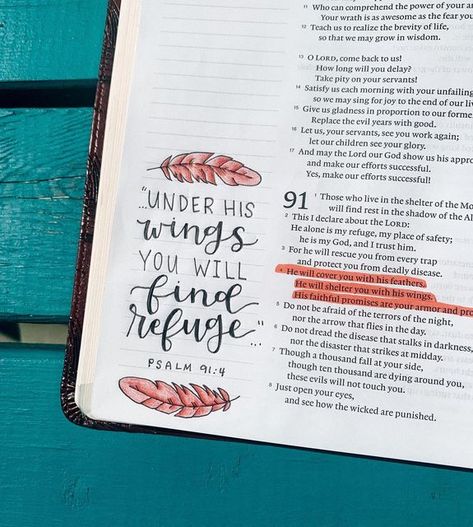 "...UNDER HIS
wings
YOU WILL
find
refuge"...
PSALM 91:4
11 Who can comprehend the power of your
Your wrath is as awesome as the fear you
12 Teach us to realize the brevity of life,
so that we may grow in wisdom.
13 O LORD, come back to us!
How long will you delay?
Take pity on your servants!
14 Satisfy us each morning with your unfailing
so we may sing for joy to the end of our
15 Give us gladness in proportion to our former
Replace the evil years with good.
16 Let us, your servants, see you work again;
let our children see your glory.
17 And may the Lord our God show us his
and make our efforts successful.
Yes, make our efforts successful!
91 1 Those who live in the shelter of the
will find rest in the shadow of the
2 This I declare about the LORD:
He alone is my refuge, my place of safety;
he is my God, and I trust him.
3 For he will rescue you from every trap
and protect you from deadly disease.
4 He will cover you with his feathers.
He will shelter you with his wings.
His faithful promises are your armor and
5 Do not be afraid of the terrors of the night,
nor the arrow that flies in the day.
6 Do not dread the disease that stalks in darkness,
nor the disaster that strikes at midday.
7 Though a thousand fall at your side,
though ten thousand are dying around you,
these evils will not touch you.
8 Just open your eyes,
and see how the wicked are punished.